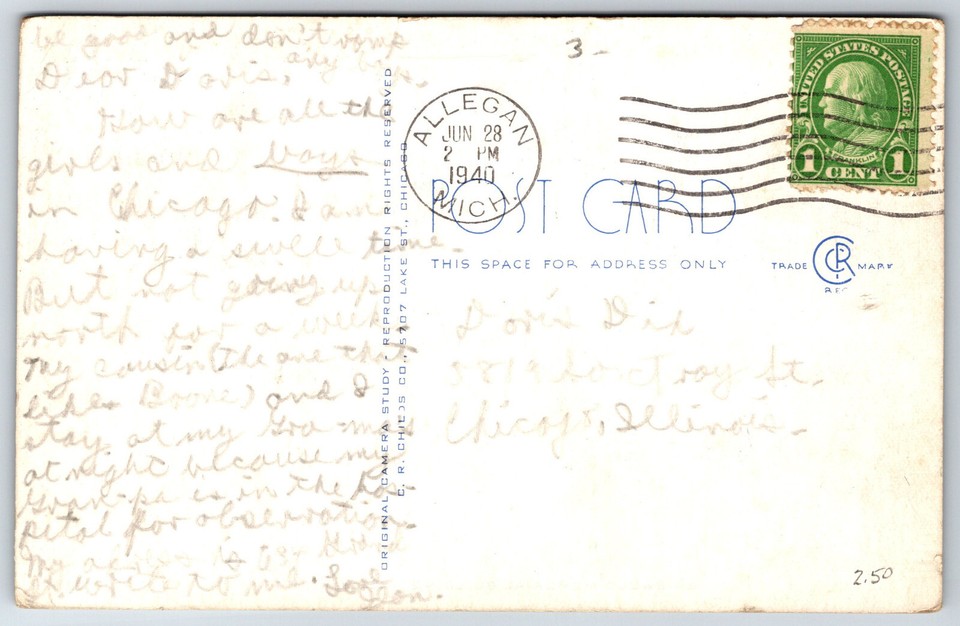 be good and don't
any boys.
Dear Doris,
How are all the
girls and boys
in Chicago. I am
having a swell time.
But not going up
north for a week.
My cousin (the one that
likes Boone) and I
stay at my Gra-mas
at night because my
Gran-pa is in the hos-
pital for observation.
My address is
write to me. Love
ORIGINAL CAMERA STUDY - REPRODUCTION RIGHTS RESERVED
C. R. CHILDS CO., 5707 LAKE ST., CHICAGO
3-
ALLEGAN
JUN 28
2 PM
1940
MICH.
UNITED STATES POSTAGE
FRANKLIN
1 CENT 1
POST CARD
THIS SPACE FOR ADDRESS ONLY
TRADE CRC MARK
REG
Doris
St.
Chicago, Illinois.
2.50